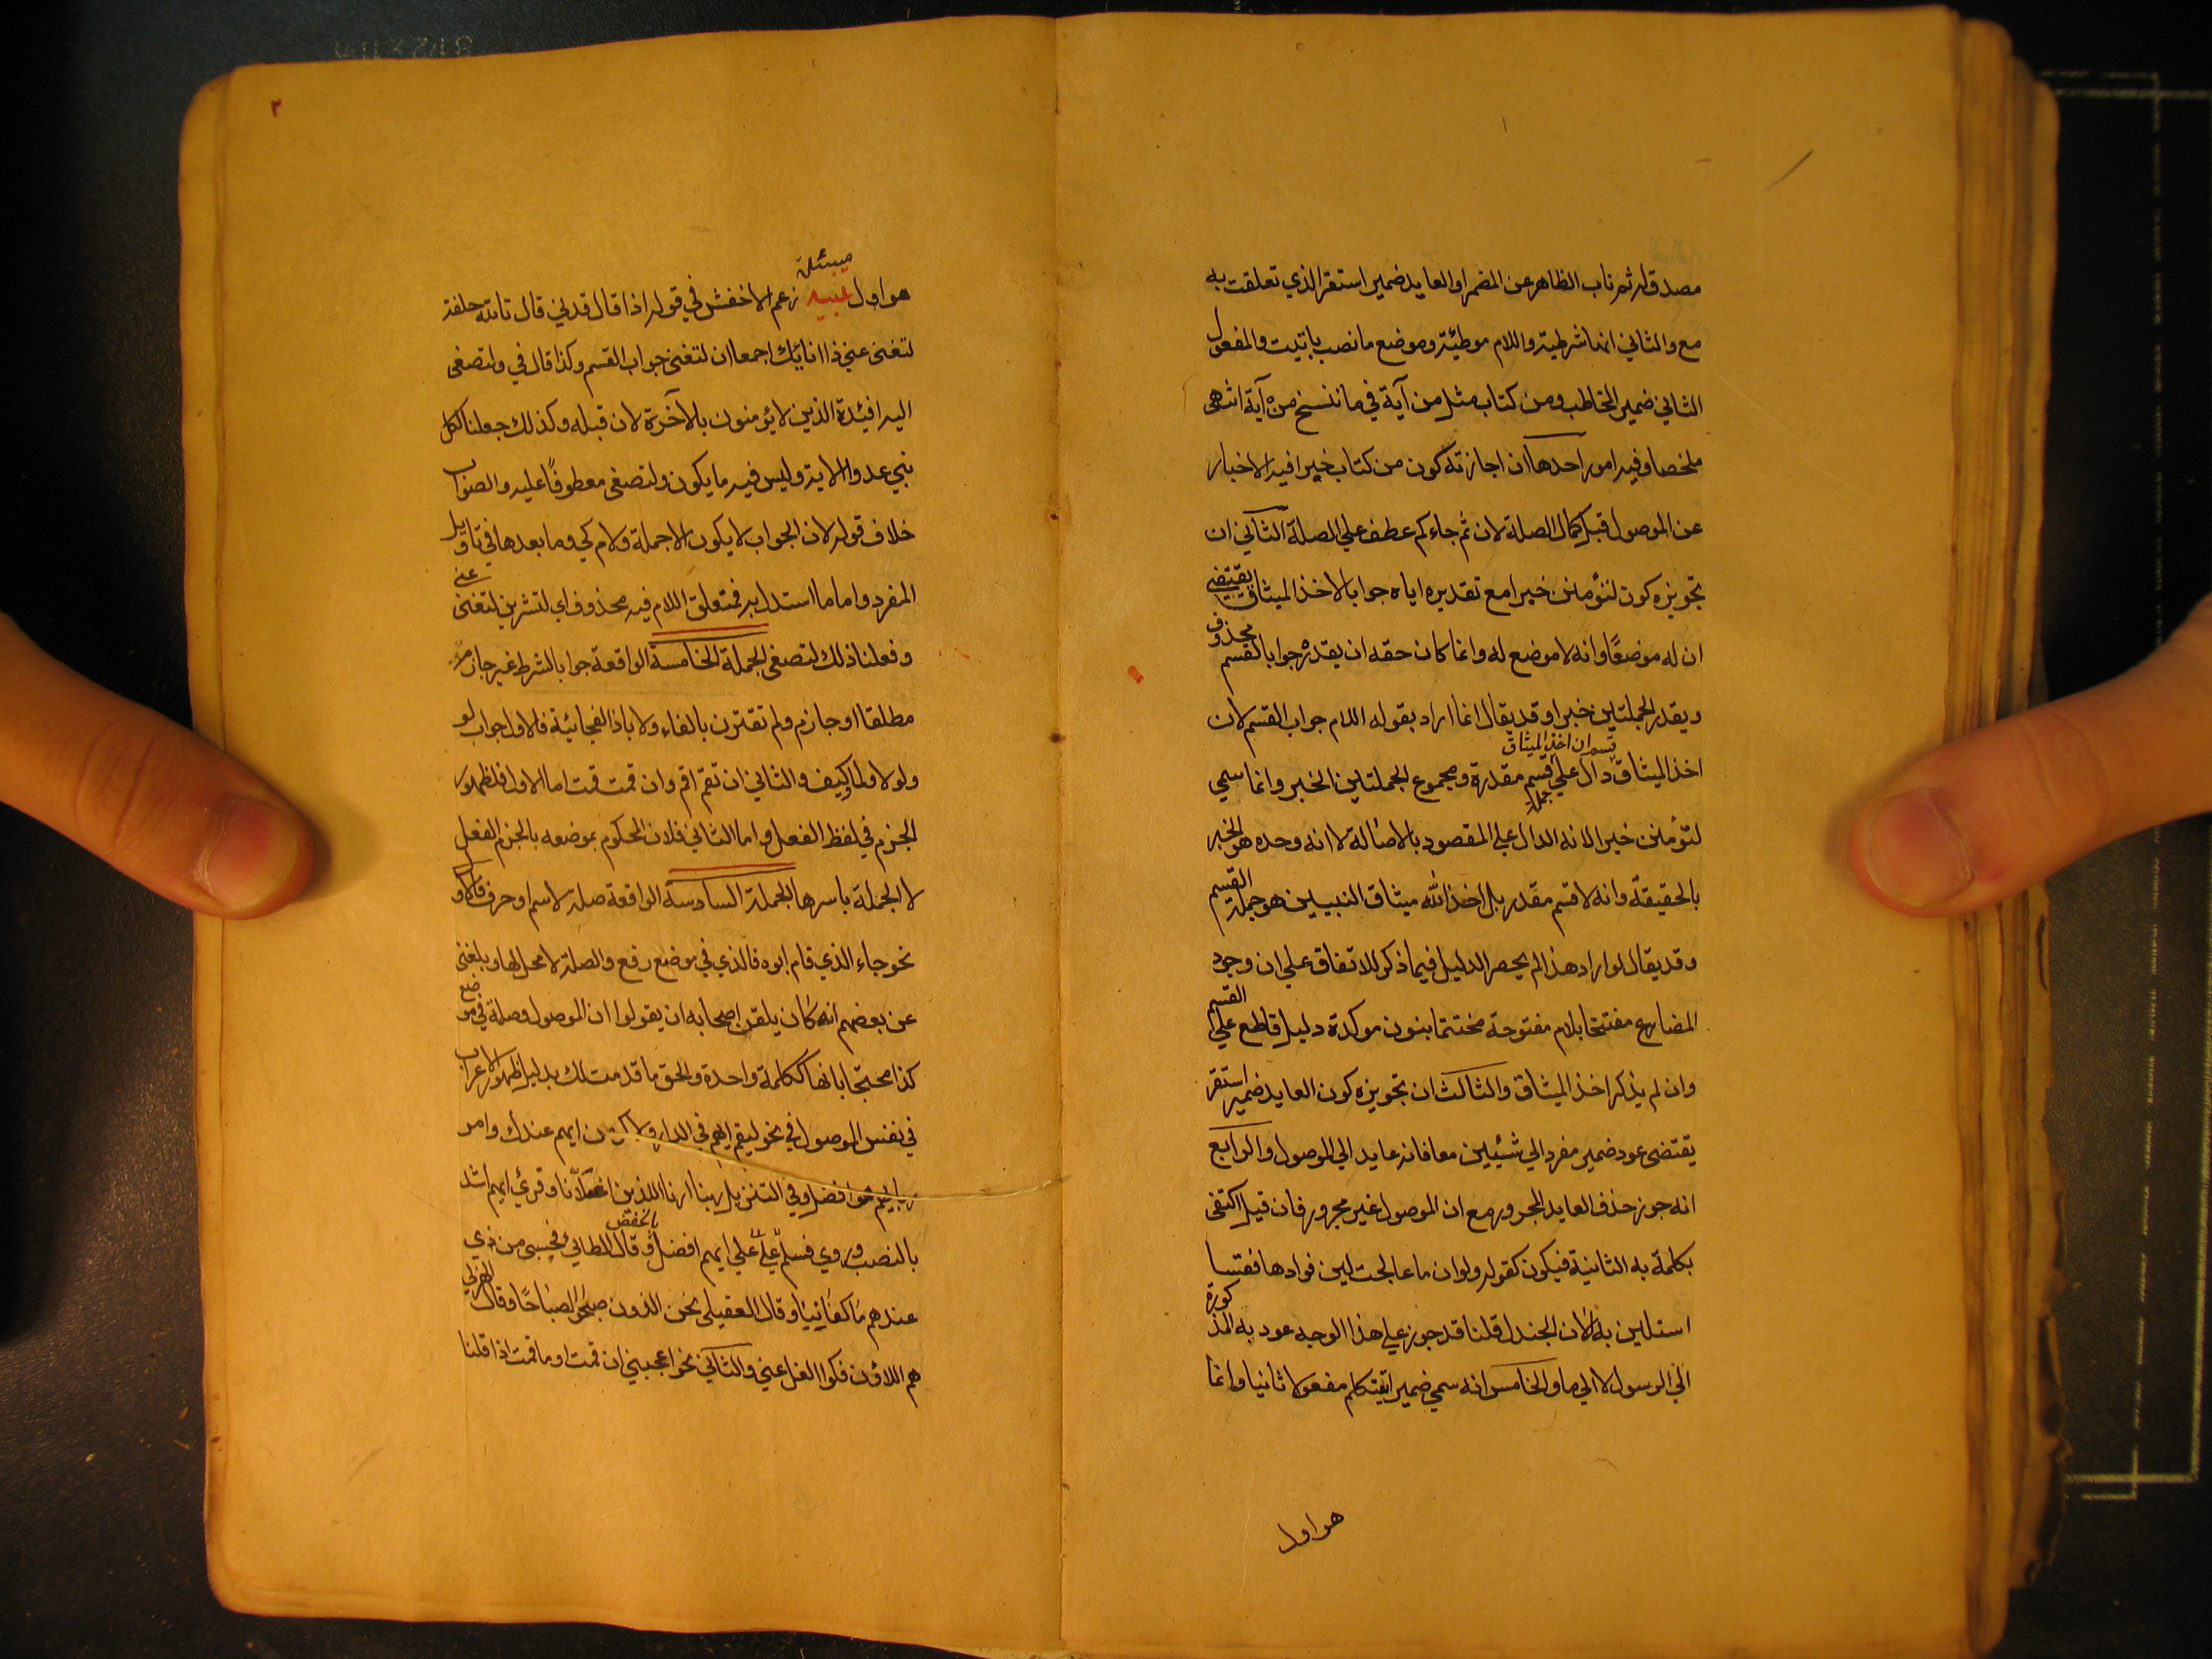 مصدق له ثم ناب الظاهر عن المضمر او العايد ضمير استقر الذي تعلقت به
مع والثاني انها شرطية واللام موطئة وموضع ما نصب باتيت والمفعول
الثاني ضمير المخاطب ومن كتاب مثل من آية في ما ننسخ من آية انتهى
ملخصا وفيه امور احدها ان اجازته كون من كتاب خبرا فيه الاخبار
عن الموصول قبل كمال الصلة لان ثم جاءكم عطف علي الصلة الثاني ان
تجويزه كون لتؤمنن خبرا مع تقديره اياه جوابا لاخذ الميثاق يقتضي
ان له موضعًا وانه لا موضع له وانما كان حقه ان يقدره جوابا لقسم محذوف
ويقدر الجملتين خبرا وقد يقال انما اراد بقوله اللام جواب القسم لان
قسم ان اخذ الميثاق
اخذ الميثاق دال علي جملة قسم مقدرة ومجموع الجملتين الخبر وانما سمي
لتؤمنن خبرا لانه الدال علي المقصود بالاصالة لا انه وحده هو الخبر
بالحقيقة وانه لا قسم مقدر بل اخذ الله ميثاق النبيين هو جملة القسم
وقد يقال لو اراد هذا لم يحصر الدليل فيما ذكر للاتفاق علي ان وجود
المضارع مفتتحا بلام مفتوحة مختتما بنون موكدة دليل قاطع علي القسم
وان لم يذكر اخذ الميثاق والثالث ان تجويزه كون العايد ضمير استقر
يقتضى عود ضمير مفرد الي شيئين معا فانه عايد الي الموصول والرابع
انه جوز حذف العايد المجرور مع ان الموصول غير مجرور فان قيل اكتفى
بكلمة به الثانية فيكون كقوله ولو ان ما عالجت لين فوادها فقسا
استلين به لان الجندل قلنا قد جوز علي هذا الوجه عود به المذكورة
الي الرسول لا الي ما والخامس انه سمي ضمير اتيتكم مفعولا ثانيا وانما
هو اول
٢
هو اول تنبيه مسئلة زعم الاخفش في قوله اذا قال قدني قال تالله حلفة
لتغنى عني ذا انائك اجمعا ان لتغنى جواب القسم وكذا قال في ولتصغى
اليه افئدة الذين لا يؤمنون بالآخرة لان قبله وكذلك جعلنا لكل
نبي عدوا الاية وليس فيه ما يكون ولتصغى معطوفًا عليه والصواب
خلاف قوله لان الجواب لا يكون الا جملة ولام كي وما بعدها في تاويل
المفرد واما ما استدل به فمتعلق اللام فيه محذوف اي لتشربن لتغنى عني
وفعلنا ذلك لتصغى الجملة الخامسة الواقعة جوابا لشرط غير جازم
مطلقا او جازم ولم تقترن بالفاء ولا باذا الفجائية فالاول جواب لو
ولولا ولما وكيف والثاني ان تقم اقم وان قمت قمت اما الاول فلظهور
الجزم في لفظ الفعل واما الثاني فلان المحكوم بموضعه بالجزم الفعل
لا الجملة باسرها الجملة السادسة الواقعة صلة لاسم او حرف فالاول
نحو جاء الذي قام ابوه فالذي في موضع رفع والصلة لا محل لها وبلغنى
عن بعضهم انه كان يلقن اصحابه ان يقولوا ان الموصول وصلة في موضع
كذا محتجا بانها ككلمة واحدة والحق ما قدمت لك بدليل ظهور الاعراب
في نفس الموصول في نحو ليقم ايهم في الدار ايهم عندك وامر
بايهم هو افضل وفي التنزيل ربنا ارنا اللذين اضلانا وقرئ ايهم اشد
بالنصب وروي فسلم علي ايهم افضل بالخفض وقال الطائي فحسبي من ذي
عندهم ما كفانيا وقال العقيلي نحن الذون صبحوا الصباحًا وقال الهزلي
هم اللاؤن فكوا الغل عني والثاني نحو اعجبني ان قمت او ما قمت اذا قلنا